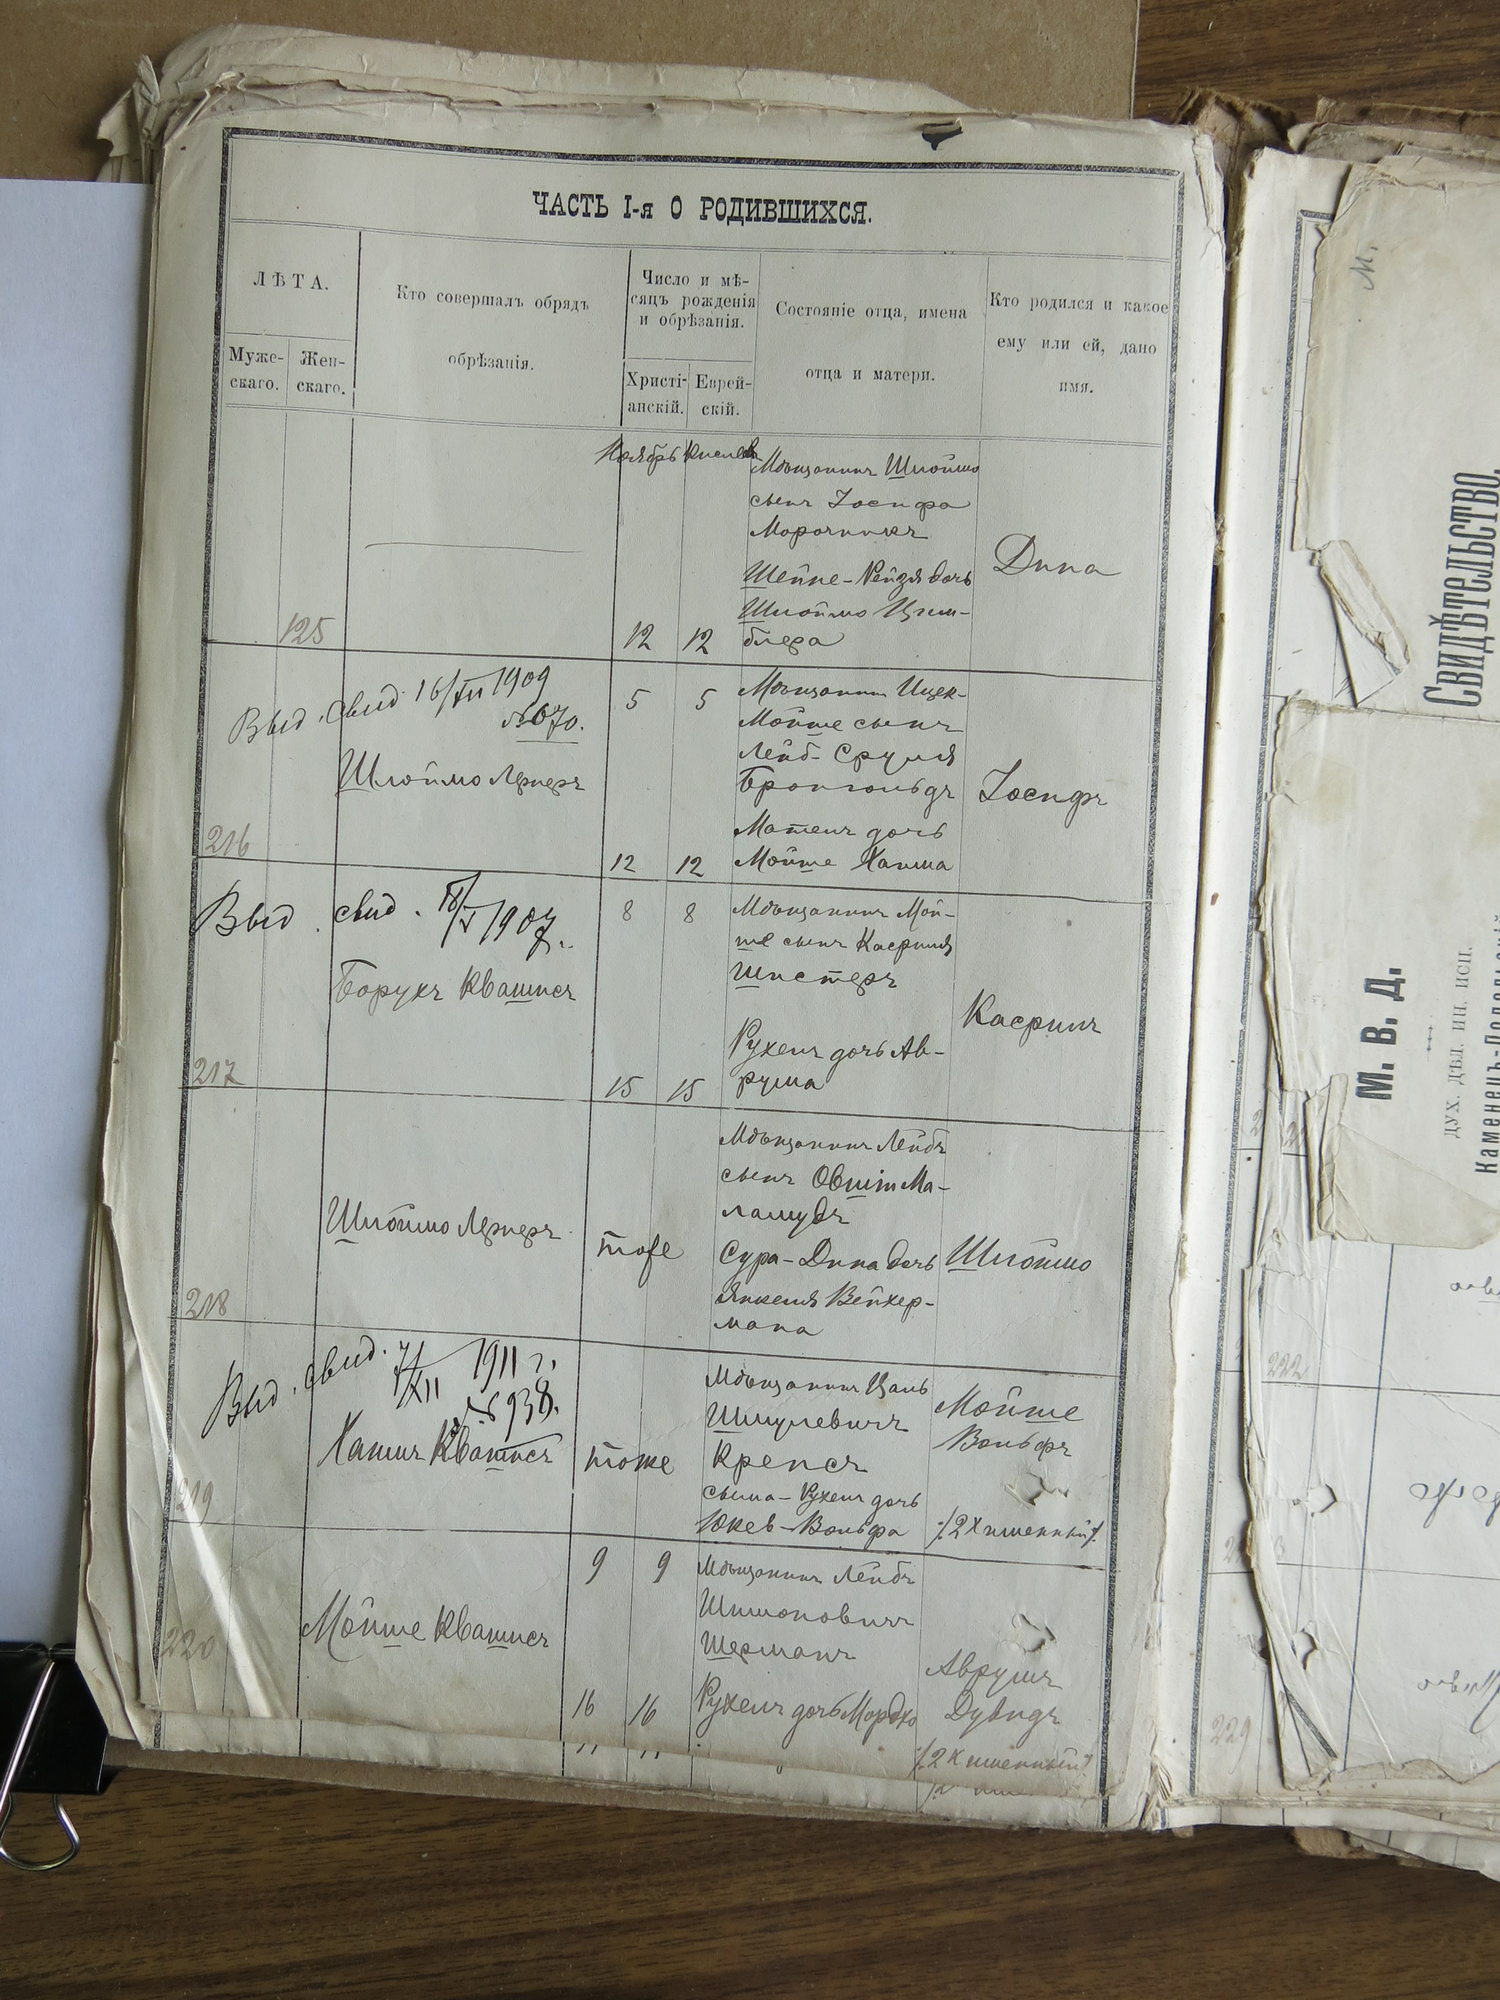 ЧАСТЬ I-я О РОДИВШИХСЯ.
ЛѢТА.
Муже-
скаго.
Жен-
скаго.
Кто совершалъ обрядъ
обрѣзанія.
Число и мѣ-
сяцъ рожденія
и обрѣзанія.
Христі-
анскій.
Еврей-
скій.
Состояніе отца, имена
отца и матери.
Кто родился и какое
ему или ей, дано
имя.
125
Ноябрь Кислевъ
12 12
Мѣщанинъ Шлоймо
сынъ Іосифа
Морочникъ
Шейне-Рейзя дочь
Шлоймо Цим-
блера
Дина
216
Выд. свид. 16/XII 1909
№ 670.
Шлоймо Лернеръ
5 5
12 12
Мѣщанинъ Ицек-
Мойше сынъ
Лейб-Сруля
Бронгольдъ
Матель дочь
Мойше Хаима
Іосифъ
217
Выд. свид. 18/V 1907.
Борухъ Квашисъ
8 8
15 15
Мѣщанинъ Мой-
ше сынъ Касриля
Шистеръ
Рухель дочь Ав-
рума
Касрилъ
218
Шлоймо Лернеръ
тоже
Мѣщанинъ Лейбъ
сынъ Овшія Ма-
ламудъ
Сура-Дина дочь
Янкеля Вейхер-
мана
Шлоймо
219
Выд. свид. 7/XII 1911 г.
№ 938.
Хаимъ Квашисъ
тоже
Мѣщанинъ Цаль
Шмулевичъ
Крепсъ
Сыма-Рухель дочь
Юкев-Вольфа
Мойше
Вольфъ
/.2х именный/.
220
Мойше Квашисъ
9 9
16 16
Мѣщанинъ Лейбъ
Шимоновичъ
Шерманъ
Рухель дочь Мордко
Аврумъ
Дувидъ
/.2х именный/
11 11
М.
СВИДѢТЕЛЬСТВО.
М. В. Д.
ДУХ. ДѢЛ. ИН. ИСП.
Каменецъ-Подольскій
222
229